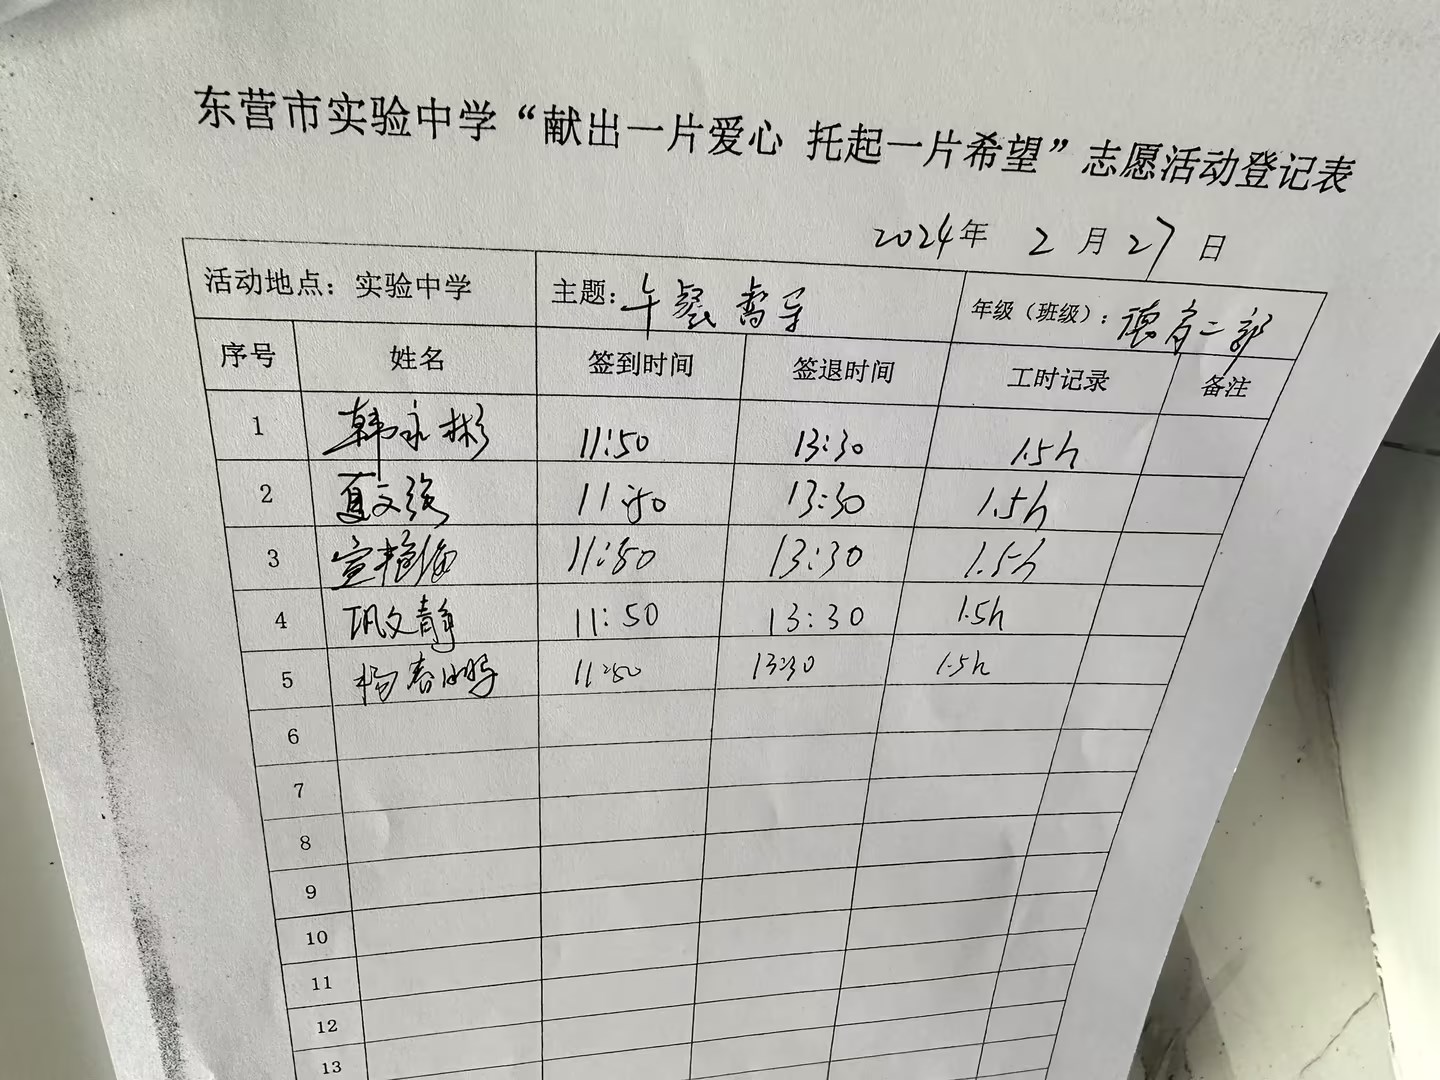 东营市实验中学“献出一片爱心 托起一片希望”志愿活动登记表
2024年 2 月 27 日
活动地点：实验中学 主题：午餐督导 年级（班级）：德育二部
序号 姓名 签到时间 签退时间 工时记录 备注
1 韩永彬 11:50 13:30 1.5h
2 夏文强 11:50 13:30 1.5h
3 宣艳海 11:50 13:30 1.5h
4 巩文静 11:50 13:30 1.5h
5 杨春 11:50 13:30 1.5h
6
7
8
9
10
11
12
13